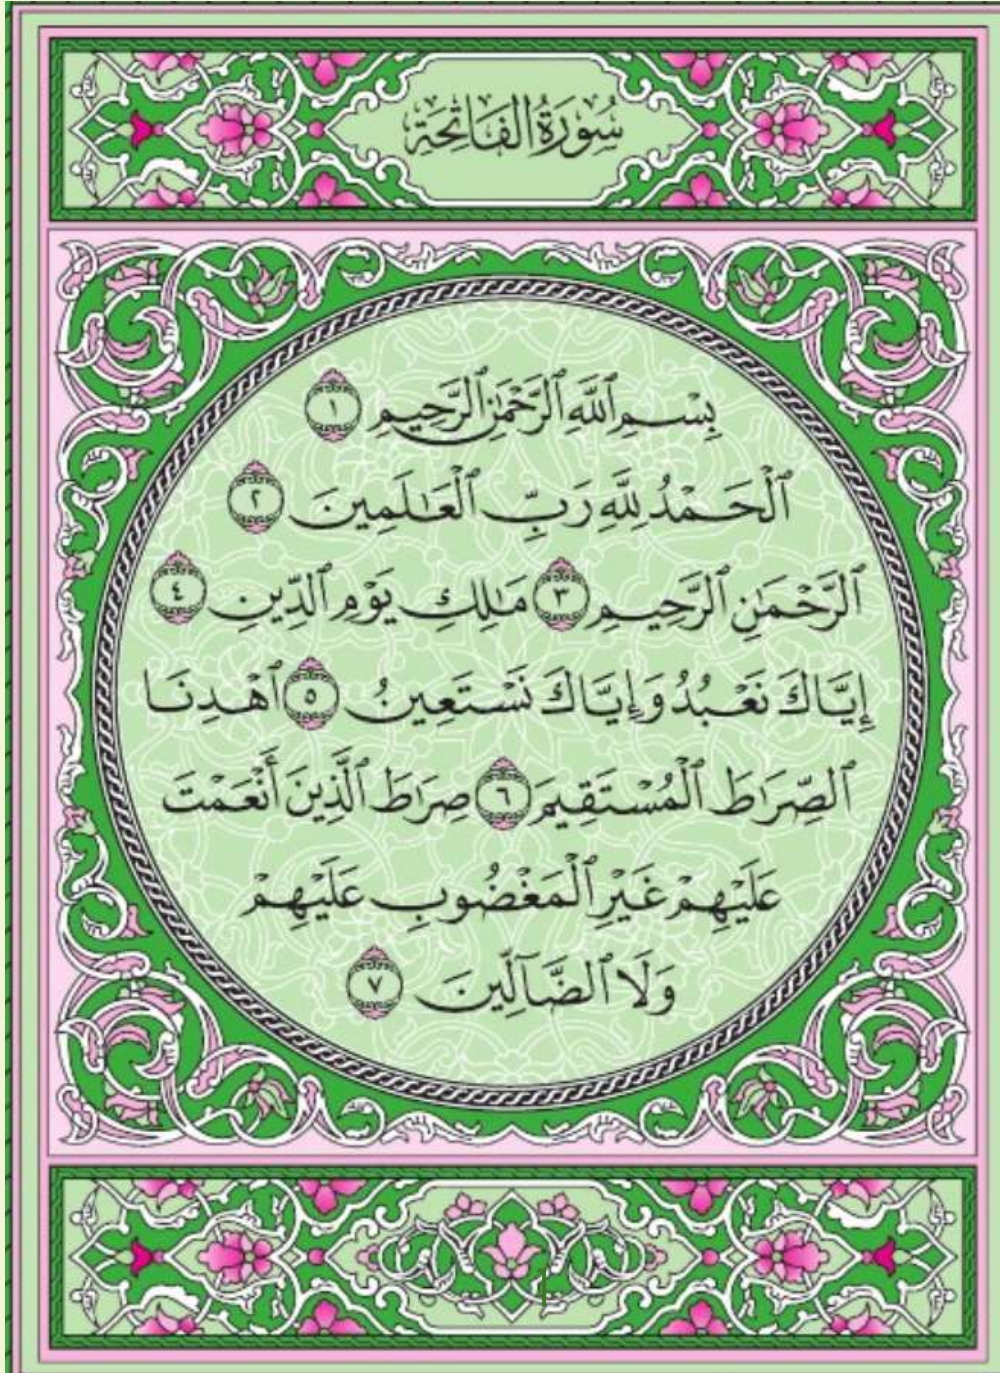 سُورَةُ الفَاتِحَةِ
بِسْمِ ٱللَّهِ ٱلرَّحْمَٰنِ ٱلرَّحِيمِ ١
ٱلْحَمْدُ لِلَّهِ رَبِّ ٱلْعَٰلَمِينَ ٢
ٱلرَّحْمَٰنِ ٱلرَّحِيمِ ٣ مَٰلِكِ يَوْمِ ٱلدِّينِ ٤
إِيَّاكَ نَعْبُدُ وَإِيَّاكَ نَسْتَعِينُ ٥ ٱهْدِنَا
ٱلصِّرَٰطَ ٱلْمُسْتَقِيمَ ٦ صِرَٰطَ ٱلَّذِينَ أَنْعَمْتَ
عَلَيْهِمْ غَيْرِ ٱلْمَغْضُوبِ عَلَيْهِمْ
وَلَا ٱلضَّآلِّينَ ٧
1